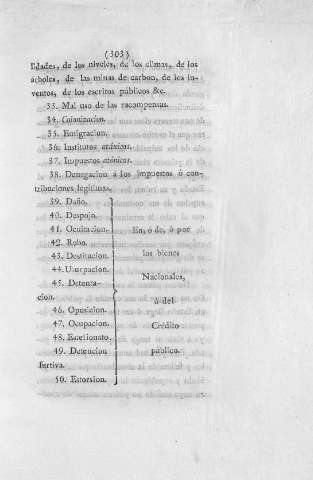 (303)
lidades, de los niveles, de los climas, de los
árboles, de las minas de carbon, de los in-
ventos, de los escritos públicos &c.
33. Mal uso de las recompensas.
34. Colonizacion.
35. Emigracion.
36. Institutos atáxicos.
37. Impuestos atónicos.
38. Denegacion á los impuestos ó con-
tribuciones legítimas.
39. Daño.
40. Despojo.
41. Ocultacion.
42. Robo.
43. Destitucion.
44. Usurpacion.
45. Detenta-
cion.
46. Oposicion.
47. Ocupacion.
48. Estelionato.
49. Detencion
furtiva.
50. Estorsion.
En, ó de, ó por
los bienes
Nacionales,
ó del
Crédito
público.